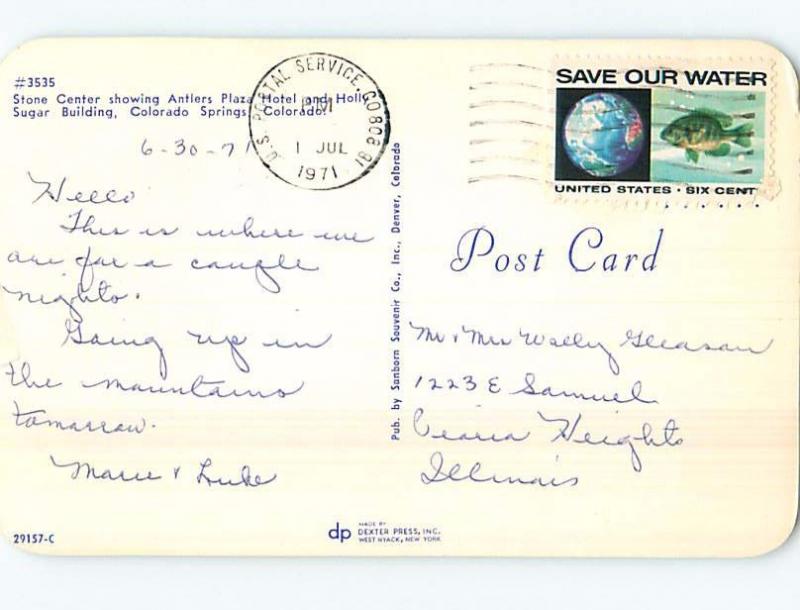 #3535
Stone Center showing Antlers Plaza Hotel and Holly
Sugar Building, Colorado Springs, Colorado.
6-30-71
Hello
This is where we
are for a couple
nights.
Going up in
the mountains
tomorrow.
Marie & Luke
29157-C
U.S. POSTAL SERVICE, CO 808 81
PM
1 JUL
1971
Pub. by Sanborn Souvenir Co., Inc., Denver, Colorado
SAVE OUR WATER
UNITED STATES · SIX CENT
Post Card
Mr & Mrs Wally Gleason
1223 E Samuel
Peoria Heights
Illinois
dp
MADE BY
DEXTER PRESS, INC.
WEST NYACK, NEW YORK